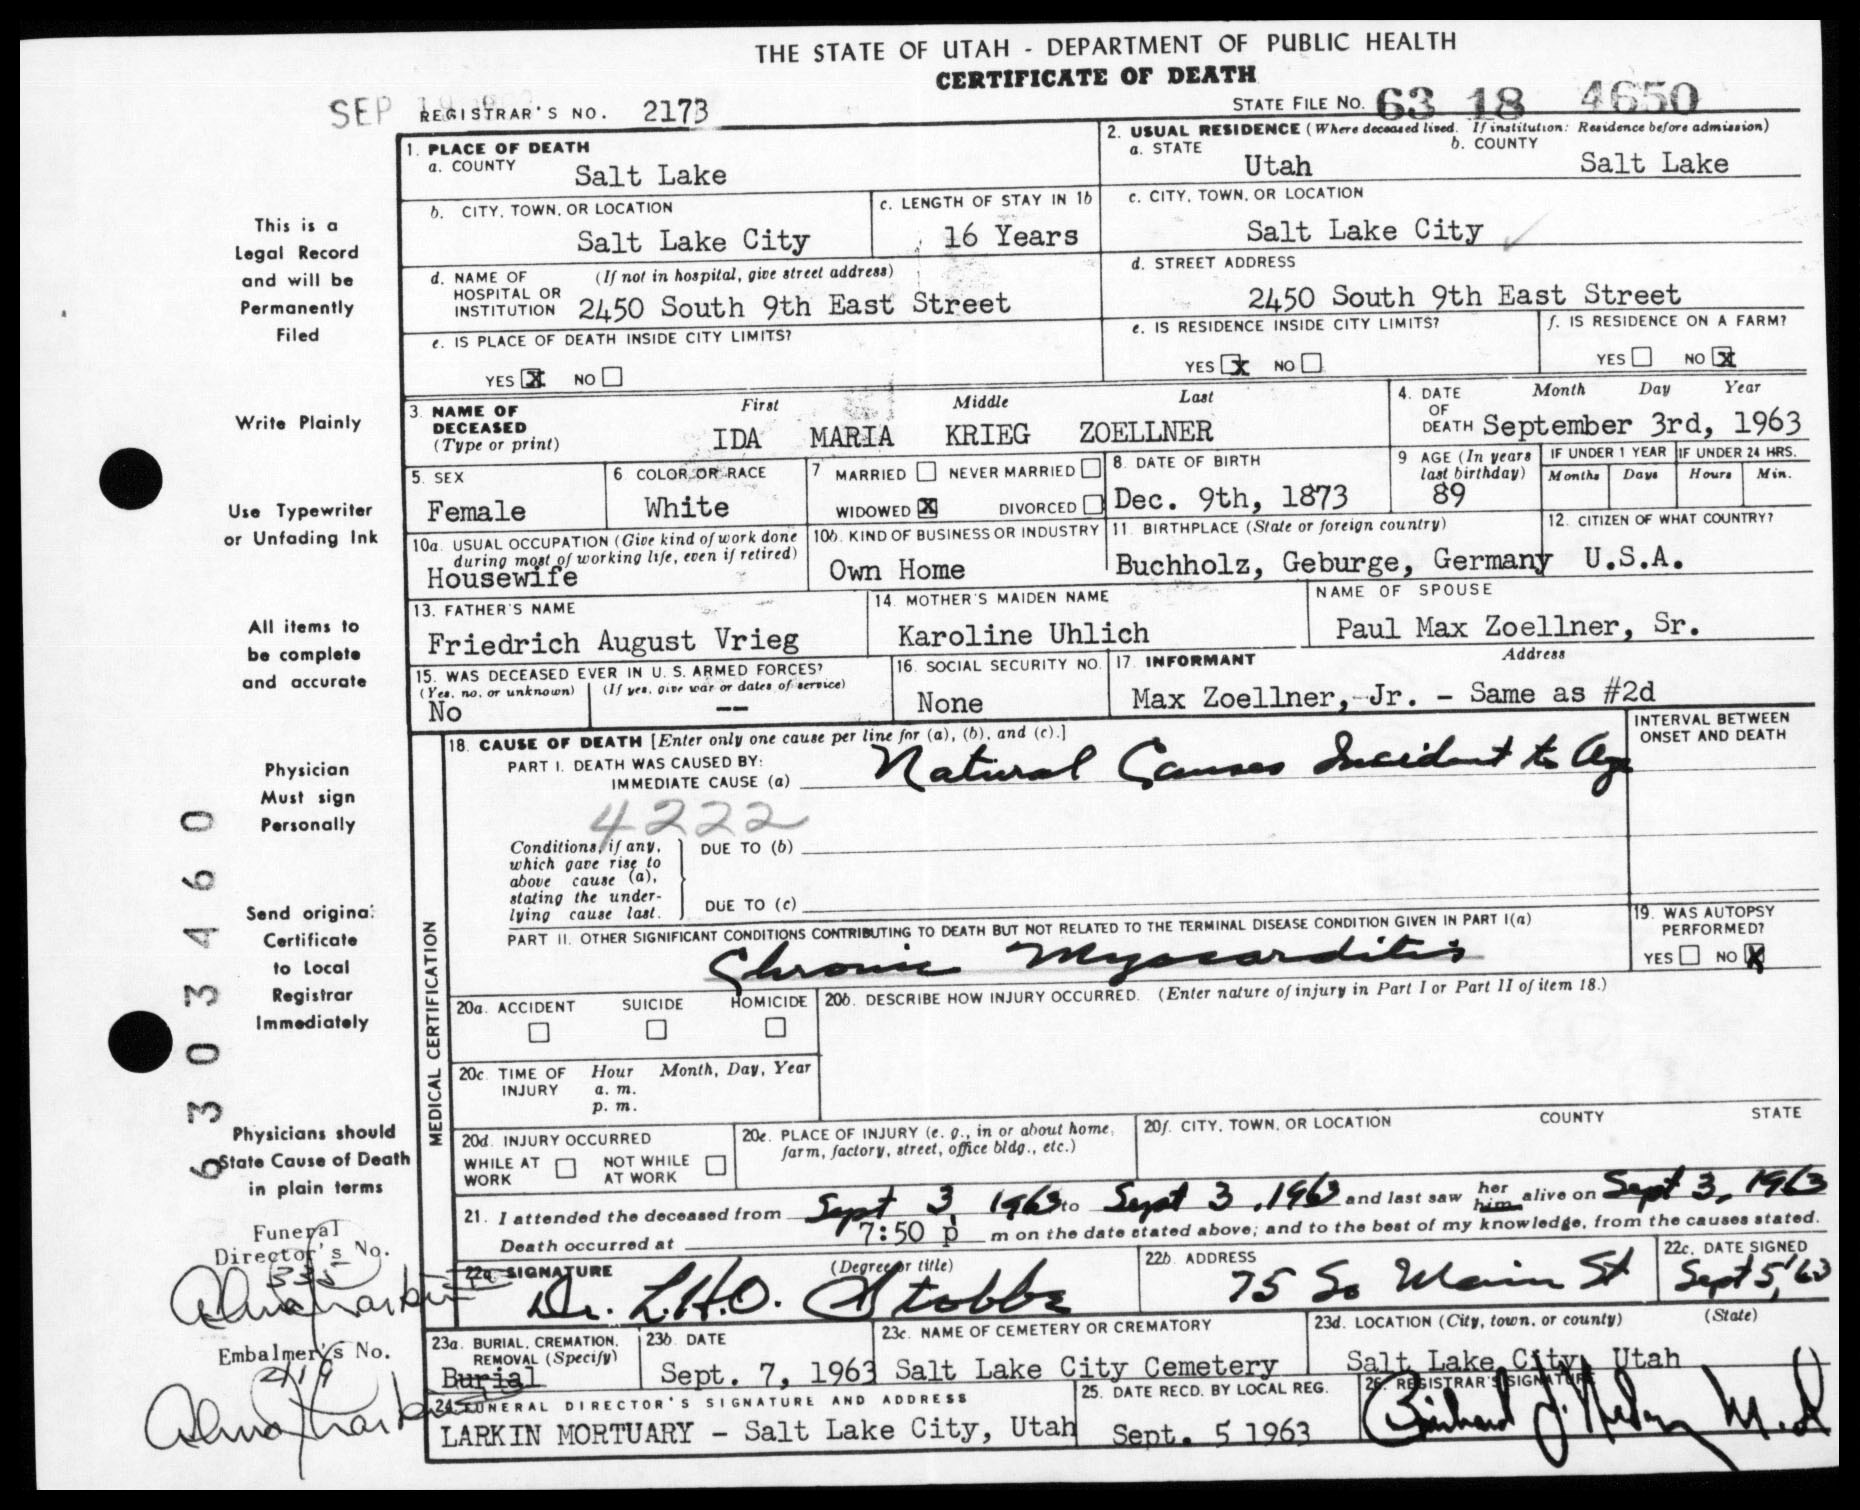 THE STATE OF UTAH - DEPARTMENT OF PUBLIC HEALTH
CERTIFICATE OF DEATH
SEP
REGISTRAR'S NO. 2173
STATE FILE NO. 63 18 4650
1. PLACE OF DEATH
a. COUNTY Salt Lake
2. USUAL RESIDENCE (Where deceased lived. If institution: Residence before admission)
a. STATE Utah b. COUNTY Salt Lake
b. CITY, TOWN, OR LOCATION Salt Lake City
c. LENGTH OF STAY IN 1b 16 Years
c. CITY, TOWN, OR LOCATION Salt Lake City
d. NAME OF HOSPITAL OR INSTITUTION (If not in hospital, give street address) 2450 South 9th East Street
d. STREET ADDRESS 2450 South 9th East Street
e. IS PLACE OF DEATH INSIDE CITY LIMITS? YES X NO
e. IS RESIDENCE INSIDE CITY LIMITS? YES X NO
f. IS RESIDENCE ON A FARM? YES NO X
3. NAME OF DECEASED (Type or print) First Middle Last
IDA MARIA KRIEG ZOELLNER
4. DATE OF DEATH Month Day Year
September 3rd, 1963
5. SEX Female
6 COLOR OR RACE White
7 MARRIED NEVER MARRIED
WIDOWED X DIVORCED
8. DATE OF BIRTH Dec. 9th, 1873
9 AGE (In years last birthday) 89
IF UNDER 1 YEAR Months Days
IF UNDER 24 HRS. Hours Min.
10a. USUAL OCCUPATION (Give kind of work done during most of working life, even if retired)
Housewife
10b. KIND OF BUSINESS OR INDUSTRY Own Home
11. BIRTHPLACE (State or foreign country) Buchholz, Geburge, Germany
12. CITIZEN OF WHAT COUNTRY? U.S.A.
13. FATHER'S NAME Friedrich August Vrieg
14. MOTHER'S MAIDEN NAME Karoline Uhlich
NAME OF SPOUSE Paul Max Zoellner, Sr.
15. WAS DECEASED EVER IN U. S. ARMED FORCES?
(Yes, no, or unknown) (If yes, give war or dates of service)
No --
16. SOCIAL SECURITY NO. None
17. INFORMANT Address
Max Zoellner, Jr. - Same as #2d
MEDICAL CERTIFICATION
18. CAUSE OF DEATH [Enter only one cause per line for (a), (b), and (c).]
INTERVAL BETWEEN ONSET AND DEATH
PART I. DEATH WAS CAUSED BY:
IMMEDIATE CAUSE (a) Natural Causes Incident to Age
4222
Conditions, if any, which gave rise to above cause (a), stating the underlying cause last.
DUE TO (b)
DUE TO (c)
PART II. OTHER SIGNIFICANT CONDITIONS CONTRIBUTING TO DEATH BUT NOT RELATED TO THE TERMINAL DISEASE CONDITION GIVEN IN PART I(a)
Chronic Myocarditis
19. WAS AUTOPSY PERFORMED? YES NO X
20a. ACCIDENT SUICIDE HOMICIDE
20b. DESCRIBE HOW INJURY OCCURRED. (Enter nature of injury in Part I or Part II of item 18.)
20c. TIME OF INJURY Hour Month, Day, Year
a. m.
p. m.
20d. INJURY OCCURRED
WHILE AT WORK NOT WHILE AT WORK
20e. PLACE OF INJURY (e. g., in or about home, farm, factory, street, office bldg., etc.)
20f. CITY, TOWN, OR LOCATION COUNTY STATE
21. I attended the deceased from Sept 3, 1963 to Sept 3, 1963 and last saw her him alive on Sept 3, 1963
Death occurred at 7:50 p m on the date stated above; and to the best of my knowledge, from the causes stated.
22a. SIGNATURE (Degree or title)
Dr. L.H.O. Stobbe
22b. ADDRESS 75 So Main St
22c. DATE SIGNED Sept 5, 63
23a. BURIAL, CREMATION, REMOVAL (Specify) Burial
23b. DATE Sept. 7, 1963
23c. NAME OF CEMETERY OR CREMATORY Salt Lake City Cemetery
23d. LOCATION (City, town, or county) (State)
Salt Lake City, Utah
24. FUNERAL DIRECTOR'S SIGNATURE AND ADDRESS
LARKIN MORTUARY - Salt Lake City, Utah
25. DATE RECD. BY LOCAL REG. Sept. 5 1963
26. REGISTRAR'S SIGNATURE
This is a
Legal Record
and will be
Permanently
Filed
Write Plainly
Use Typewriter
or Unfading Ink
All items to
be complete
and accurate
Physician
Must sign
Personally
Send original
Certificate
to Local
Registrar
Immediately
Physicians should
State Cause of Death
in plain terms
6303460
Funeral
Director's No.
335
Alma Larkin
Embalmer's No.
2119
Alma Larkin